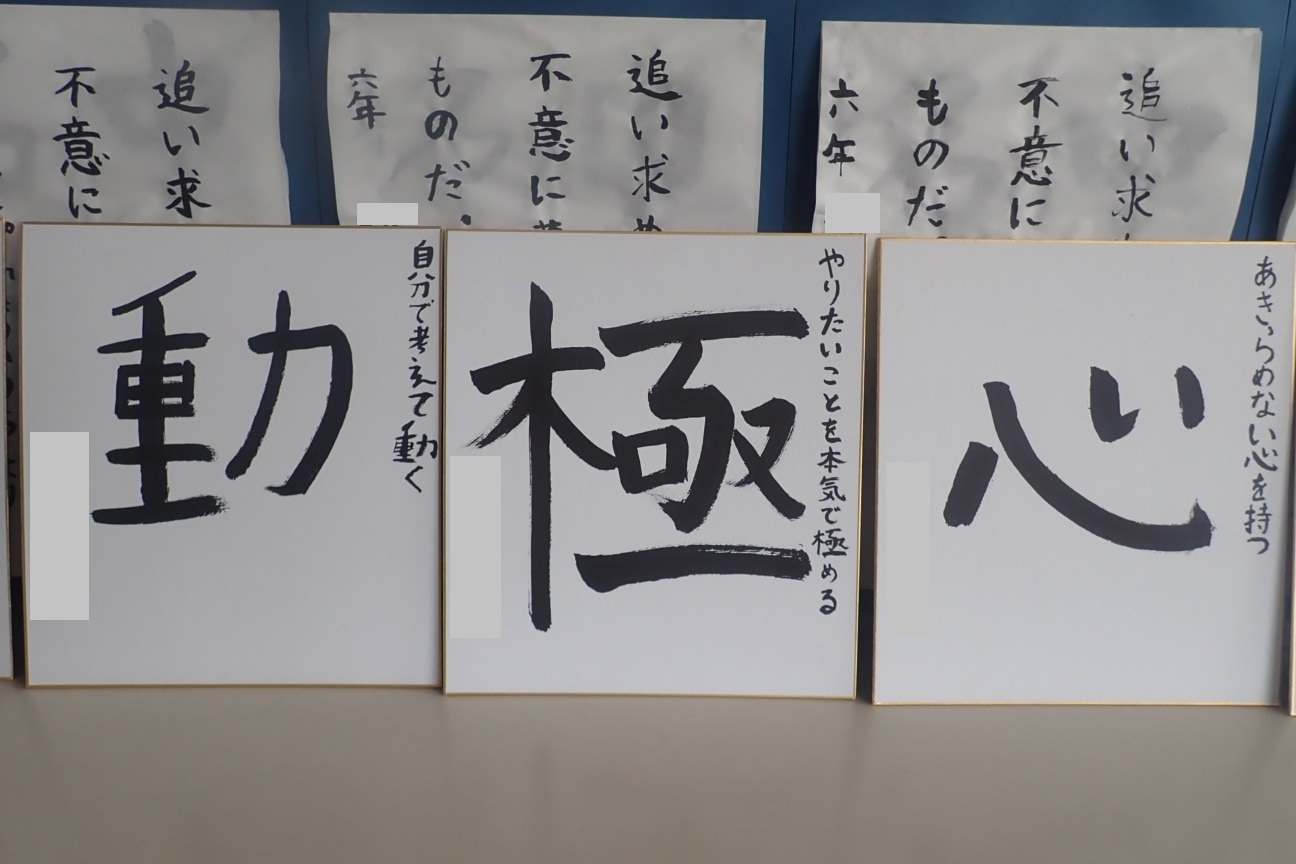 追い求
不意に
追い求め
不意に
ものだ。
六年
追い求
不意に
ものだ。
六年
自分で考えて動く
動
やりたいことを本気で極める
極
あきらめない心を持つ
心